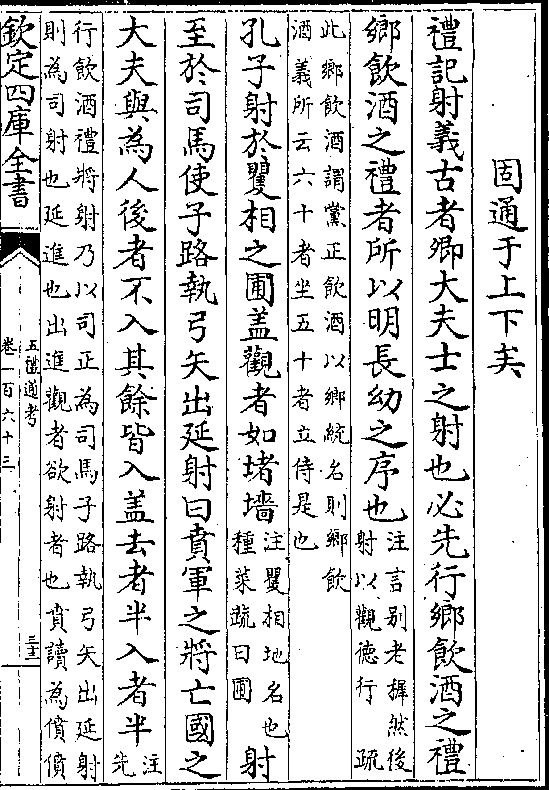 固通于上下矣
禮記射義古者卿大夫士之射也必先行鄉飲酒之禮
鄉飲酒之禮者所以明長幼之序也注言别老穉然後
射以觀德行 疏
此鄉飲酒謂黨正飲酒以鄉統名則鄉飲
酒義所云六十者坐五十者立侍是也
孔子射於矍相之圃盖觀者如堵墻注矍相地名也
種菜蔬曰圃射
至於司馬使子路執弓矢出延射曰賁軍之將亡國之
大夫與為人後者不入其餘皆入盖去者半入者半注
先
行飲酒禮將射乃以司正為司馬子路執弓矢出延射
則為司射也延進也出進觀者欲射者也賁讀為僨僨
欽定四庫全書
五禮通考
卷一百六十三
三十三